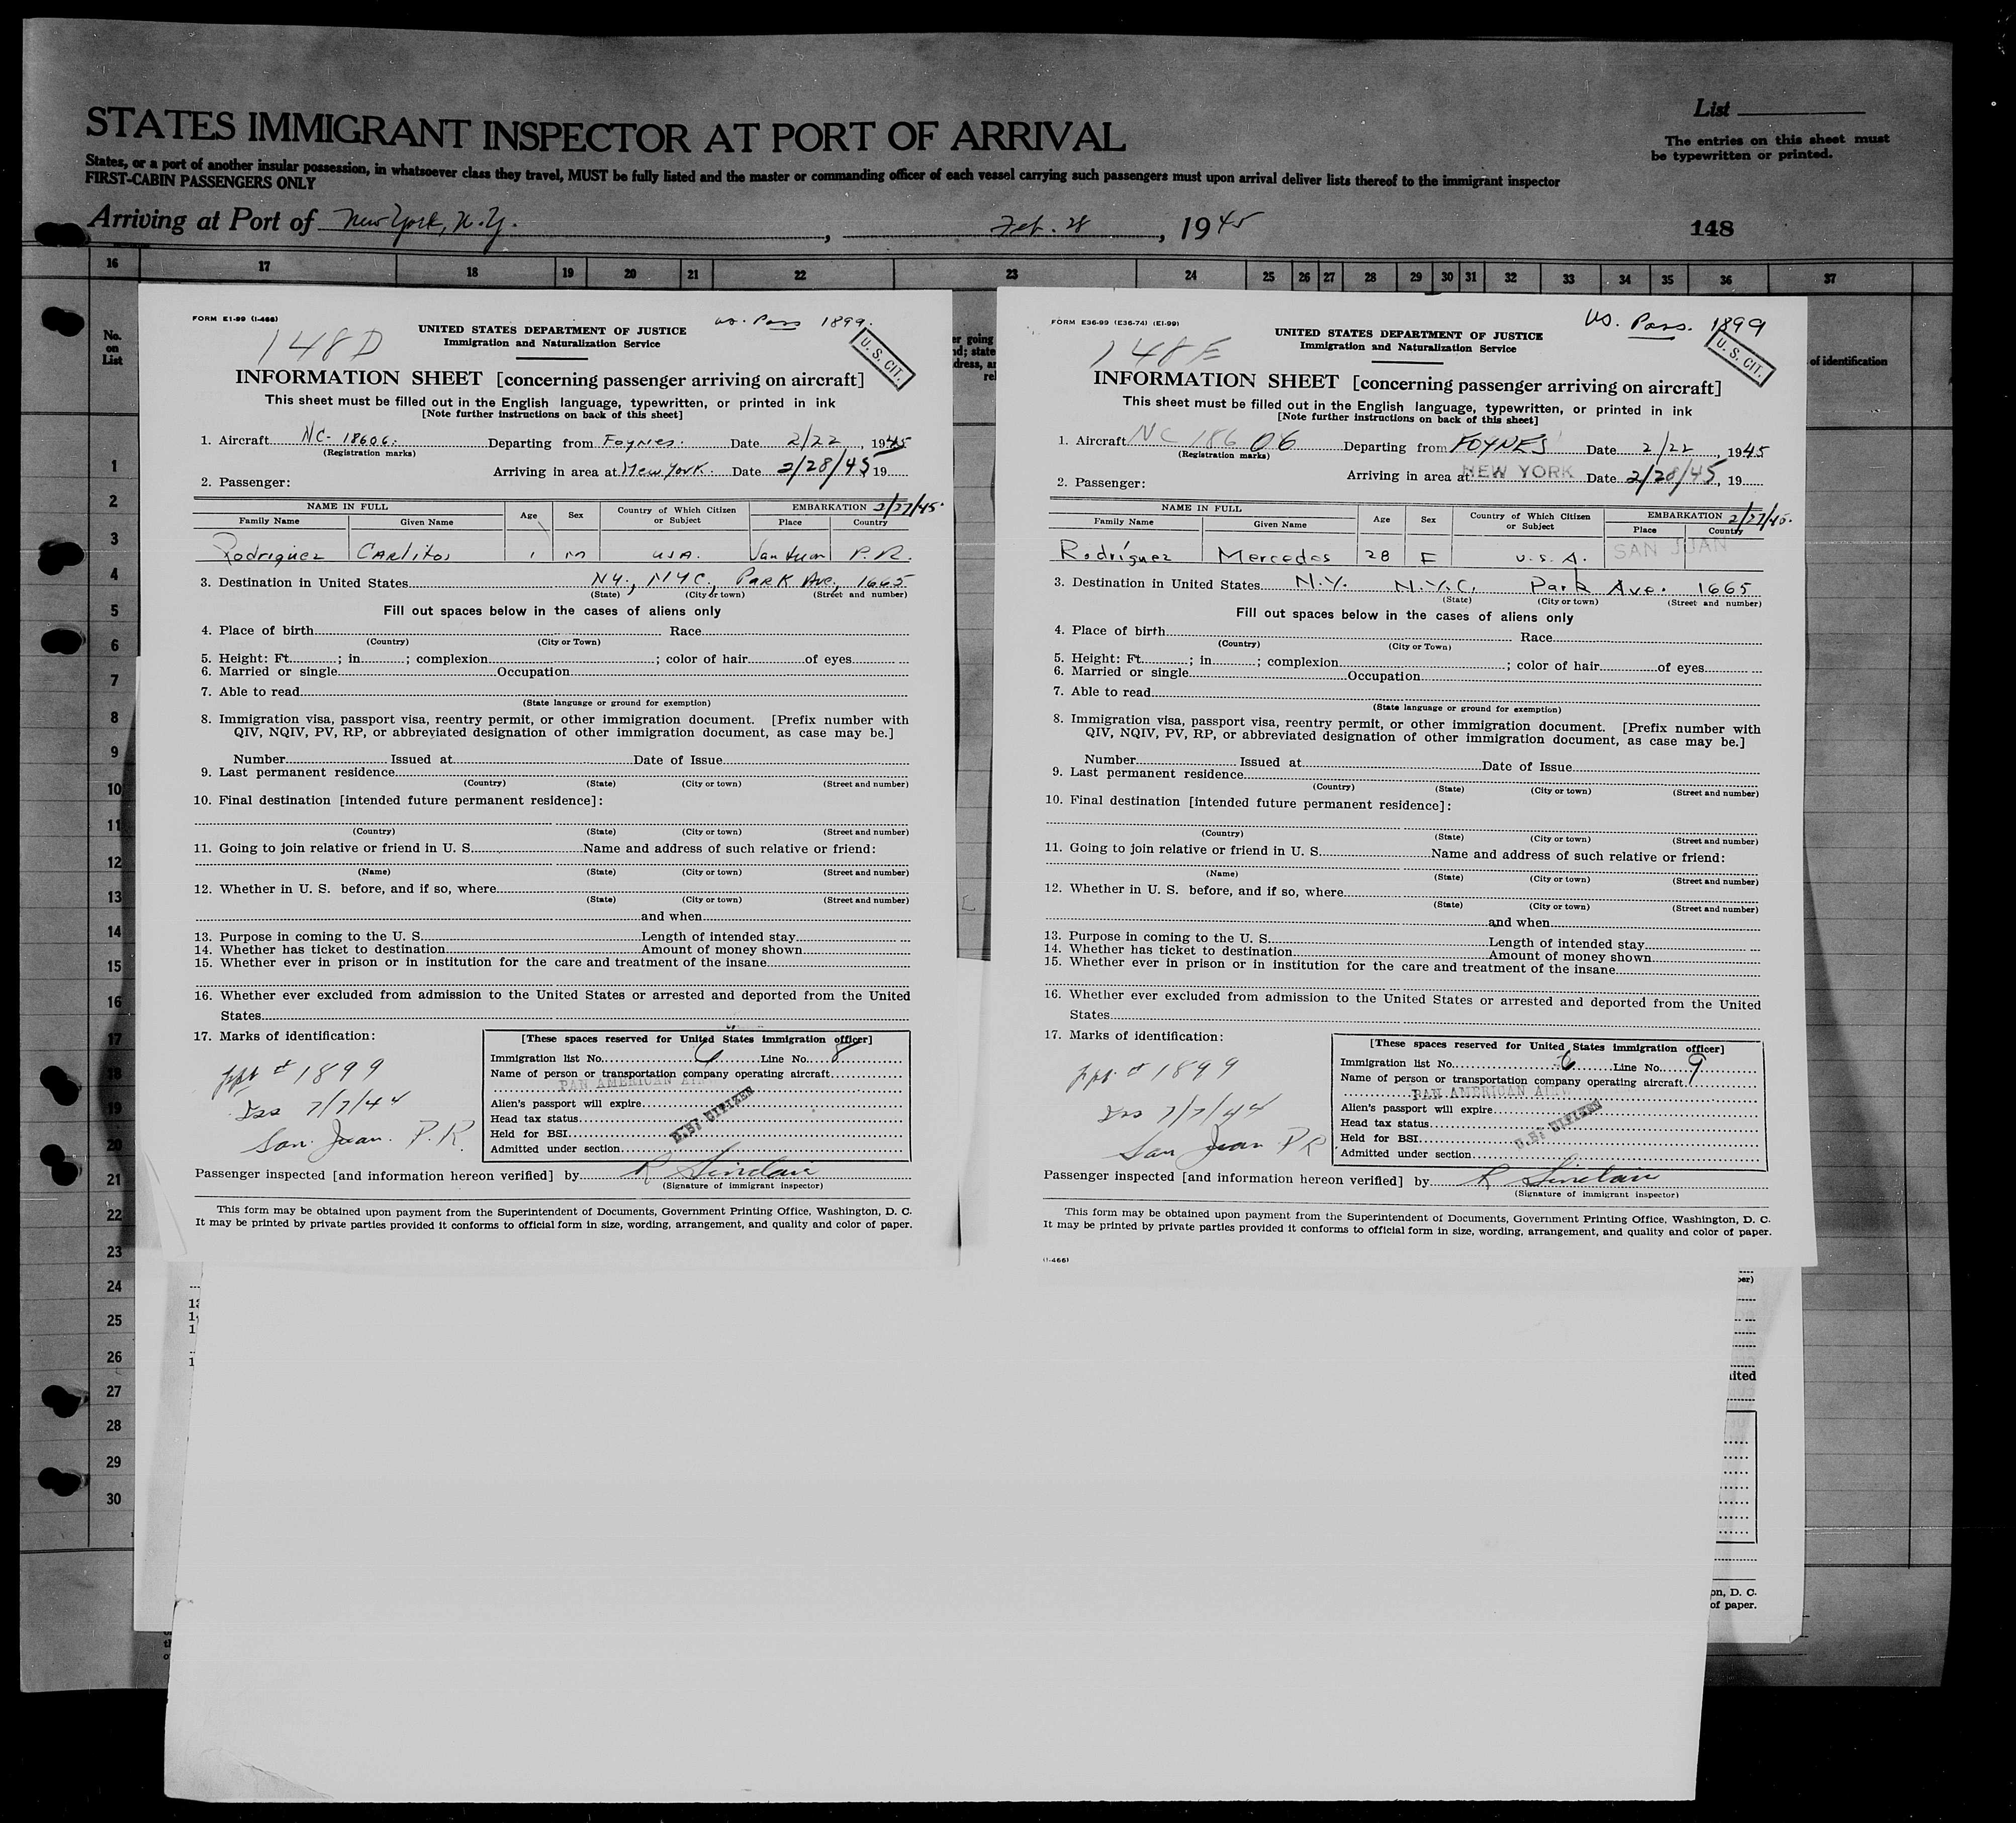 STATES IMMIGRANT INSPECTOR AT PORT OF ARRIVAL
List
The entries on this sheet must
be typewritten or printed.
States, or a port of another insular possession, in whatsoever class they travel, MUST be fully listed and the master or commanding officer of each vessel carrying such passengers must upon arrival deliver lists thereof to the immigrant inspector
FIRST-CABIN PASSENGERS ONLY
Arriving at Port of New York, N.Y. , Feb. 28 , 1945
148
16 17 18 19 20 21 22 23 24 25 26 27 28 29 30 31 32 33 34 35 36 37
No.
on
List
of identification
1
2
3
4
5
6
7
8
9
10
11
12
13
14
15
16
17
18
19
20
21
22
23
24
25
26
27
28
29
30
FORM E1-99 (I-466)
us. Pass 1899.
148D
UNITED STATES DEPARTMENT OF JUSTICE
Immigration and Naturalization Service
U. S. CIT.
INFORMATION SHEET [concerning passenger arriving on aircraft]
This sheet must be filled out in the English language, typewritten, or printed in ink
[Note further instructions on back of this sheet]
1. Aircraft NC-18606. Departing from Foynes. Date 2/22, 1945
(Registration marks)
Arriving in area at New York Date 2/28/45 19
2. Passenger:
NAME IN FULL Age Sex Country of Which Citizen or Subject EMBARKATION 2/27/45.
Family Name Given Name Place Country
Rodriguez Carlitos 1 M USA. San Juan P.R.
3. Destination in United States NY., NYC., Park Ave. 1665
(State) (City or town) (Street and number)
Fill out spaces below in the cases of aliens only
4. Place of birth Race
(Country) (City or Town)
5. Height: Ft. ; in ; complexion ; color of hair of eyes
6. Married or single Occupation
7. Able to read
(State language or ground for exemption)
8. Immigration visa, passport visa, reentry permit, or other immigration document. [Prefix number with
QIV, NQIV, PV, RP, or abbreviated designation of other immigration document, as case may be.]
Number Issued at Date of Issue
9. Last permanent residence
(Country) (State) (City or town) (Street and number)
10. Final destination [intended future permanent residence]:
(Country) (State) (City or town) (Street and number)
11. Going to join relative or friend in U. S. Name and address of such relative or friend:
(Name) (State) (City or town) (Street and number)
12. Whether in U. S. before, and if so, where
(State) (City or town) (Street and number)
and when
13. Purpose in coming to the U. S. Length of intended stay
14. Whether has ticket to destination Amount of money shown
15. Whether ever in prison or in institution for the care and treatment of the insane
16. Whether ever excluded from admission to the United States or arrested and deported from the United
States
17. Marks of identification:
ppt # 1899
Iss 7/7/44
San Juan. P.R.
[These spaces reserved for United States immigration officer]
Immigration list No. 6 Line No. 8
Name of person or transportation company operating aircraft
PAN AMERICAN AIR
Alien's passport will expire
Head tax status
Held for BSI
U.S. CITIZEN
Admitted under section
Passenger inspected [and information hereon verified] by R Sinclair
(Signature of immigrant inspector)
This form may be obtained upon payment from the Superintendent of Documents, Government Printing Office, Washington, D. C.
It may be printed by private parties provided it conforms to official form in size, wording, arrangement, and quality and color of paper.
FORM E36-99 (E36-74) (E1-99)
US. Pass. 1899
148E
UNITED STATES DEPARTMENT OF JUSTICE
Immigration and Naturalization Service
U. S. CIT.
INFORMATION SHEET [concerning passenger arriving on aircraft]
This sheet must be filled out in the English language, typewritten, or printed in ink
[Note further instructions on back of this sheet]
1. Aircraft NC 18606 Departing from FOYNES Date 2/22, 1945
(Registration marks)
Arriving in area at NEW YORK Date 2/28/45, 19
2. Passenger:
NAME IN FULL Age Sex Country of Which Citizen or Subject EMBARKATION 2/27/45.
Family Name Given Name Place Country
Rodríguez Mercedes 28 F U.S.A. SAN JUAN
3. Destination in United States N.Y. N.Y.C. Park Ave. 1665
(State) (City or town) (Street and number)
Fill out spaces below in the cases of aliens only
4. Place of birth Race
(Country) (City or Town)
5. Height: Ft. ; in ; complexion ; color of hair of eyes
6. Married or single Occupation
7. Able to read
(State language or ground for exemption)
8. Immigration visa, passport visa, reentry permit, or other immigration document. [Prefix number with
QIV, NQIV, PV, RP, or abbreviated designation of other immigration document, as case may be.]
Number Issued at Date of Issue
9. Last permanent residence
(Country) (State) (City or town) (Street and number)
10. Final destination [intended future permanent residence]:
(Country) (State) (City or town) (Street and number)
11. Going to join relative or friend in U. S. Name and address of such relative or friend:
(Name) (State) (City or town) (Street and number)
12. Whether in U. S. before, and if so, where
(State) (City or town) (Street and number)
and when
13. Purpose in coming to the U. S. Length of intended stay
14. Whether has ticket to destination Amount of money shown
15. Whether ever in prison or in institution for the care and treatment of the insane
16. Whether ever excluded from admission to the United States or arrested and deported from the United
States
17. Marks of identification:
ppt. # 1899
Iss 7/7/44
San Juan PR
[These spaces reserved for United States immigration officer]
Immigration list No. 6 Line No. 9
Name of person or transportation company operating aircraft
PAN AMERICAN AIRW
Alien's passport will expire
Head tax status
Held for BSI
U.S. CITIZEN
Admitted under section
Passenger inspected [and information hereon verified] by R Sinclair
(Signature of immigrant inspector)
This form may be obtained upon payment from the Superintendent of Documents, Government Printing Office, Washington, D. C.
It may be printed by private parties provided it conforms to official form in size, wording, arrangement, and quality and color of paper.
(I-466)
on, D. C.
of paper.